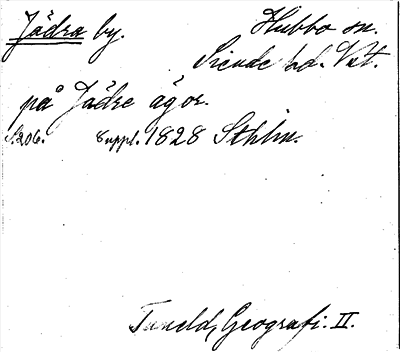 Jädra by. Hubbo sn.
Siende hd. Vstm.
på Jädre ägor.
S. 206. Suppl. 1828 Sthlm.
Tuneld, Geografi. II.